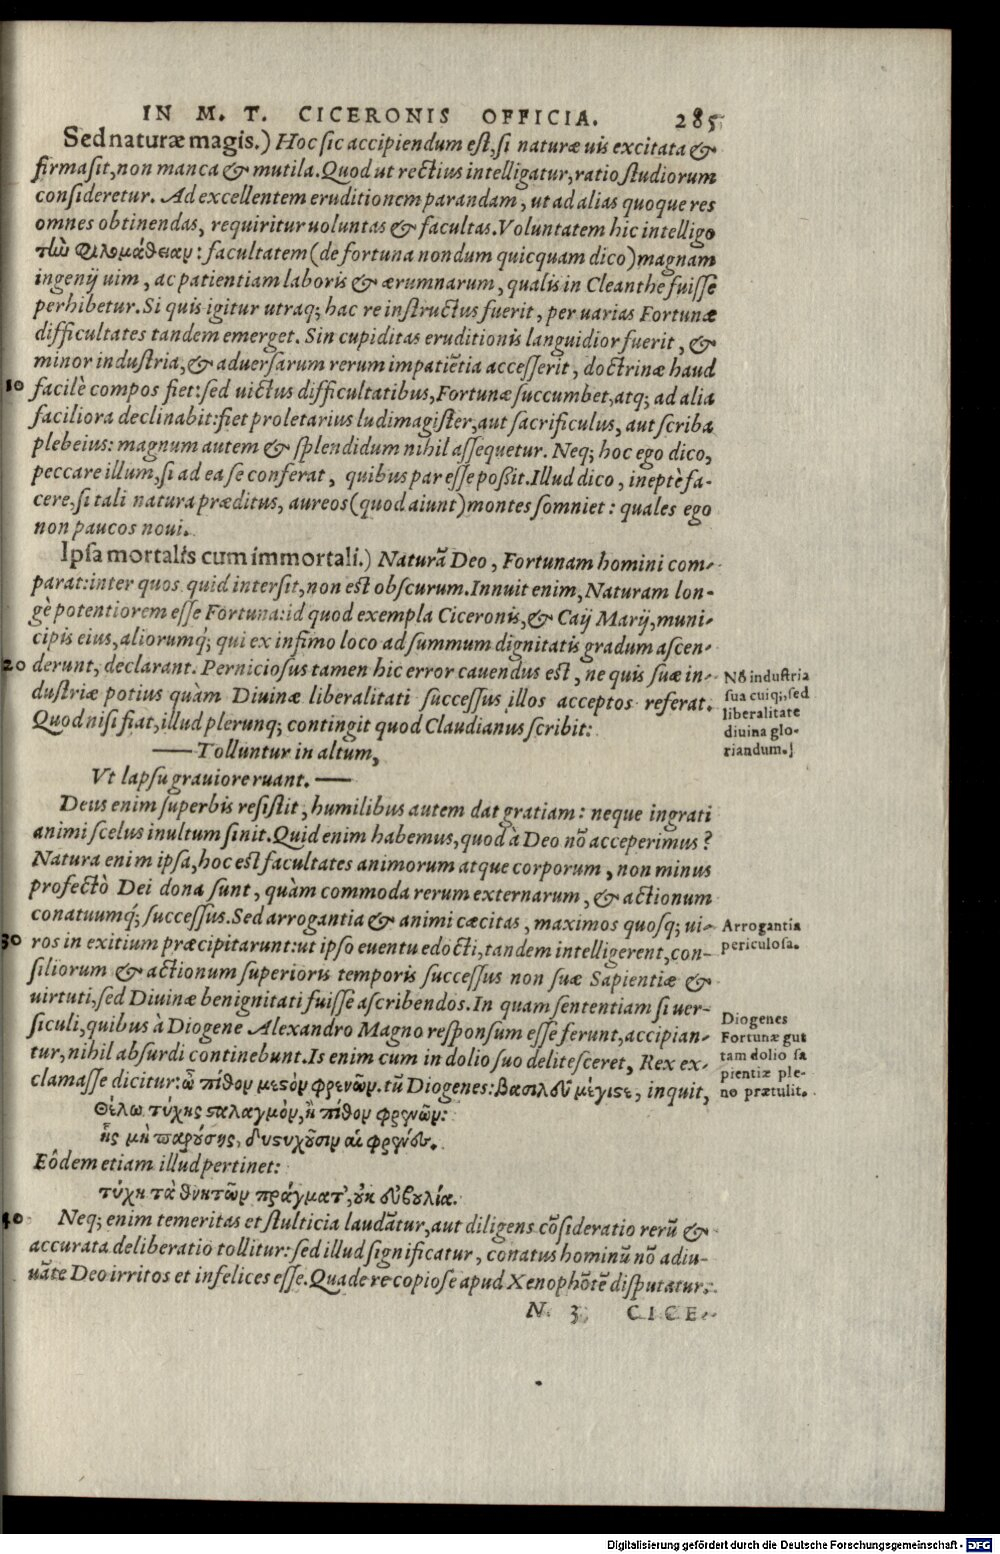 IN M. T. CICERONIS OFFICIA. 285
Sed naturæ magis.) Hoc sic accipiendum est, si naturæ uis excitata &
firma sit, non manca & mutila. Quod ut rectius intelligatur, ratio studiorum
consideretur. Ad excellentem eruditionem parandam, ut ad alias quoque res
omnes obtinendas, requiritur uoluntas & facultas. Voluntatem hic intelligo
τὴν φιλομάθειαν: facultatem (de fortuna nondum quicquam dico) magnam
ingenij uim, ac patientiam laboris & ærumnarum, qualis in Cleanthe fuisse
perhibetur. Si quis igitur utraq; hac re instructus fuerit, per uarias Fortunæ
difficultates tandem emerget. Sin cupiditas eruditionis languidior fuerit, &
minor industria, & aduersarum rerum impatiētia accesserit, doctrinæ haud
10 facilè compos fiet: sed uictus difficultatibus, Fortunæ succumbet, atq; ad alia
faciliora declinabit: fiet proletarius ludimagister, aut sacrificulus, aut scriba
plebeius: magnum autem & splendidum nihil assequetur. Neq; hoc ego dico,
peccare illum, si ad ea se conferat, quibus par esse poßit. Illud dico, ineptè fa-
cere, si tali natura præditus, aureos (quod aiunt) montes somniet: quales ego
non paucos noui.
Ipsa mortalis cum immortali.) Naturā Deo, Fortunam homini com-
parat: inter quos quid intersit, non est obscurum. Innuit enim, Naturam lon-
gè potentiorem esse Fortuna: id quod exempla Ciceronis, & Caij Marij, muni-
cipis eius, aliorumq́; qui ex infimo loco ad summum dignitatis gradum ascen-
20 derunt, declarant. Perniciosus tamen hic error cauendus est, ne quis suæ in-
dustriæ potius quàm Diuinæ liberalitati successus illos acceptos referat.
Quod nisi fiat, illud plerunq; contingit quod Claudianus scribit:
Nō industria
sua cuiq;, sed
liberalitate
diuina glo-
riandum.
— Tolluntur in altum,
Vt lapsu grauiore ruant. —
Deus enim superbis resistit, humilibus autem dat gratiam: neque ingrati
animi scelus inultum sinit. Quid enim habemus, quod à Deo nō acceperimus?
Natura enim ipsa, hoc est facultates animorum atque corporum, non minus
profectò Dei dona sunt, quàm commoda rerum externarum, & actionum
conatuumq́; successus. Sed arrogantia & animi cæcitas, maximos quosq; ui-
30 ros in exitium præcipitarunt: ut ipso euentu edocti, tandem intelligerent, con-
siliorum & actionum superioris temporis successus non suæ Sapientiæ &
uirtuti, sed Diuinæ benignitati fuisse ascribendos. In quam sententiam si uer-
siculi, quibus à Diogene Alexandro Magno responsum esse ferunt, accipian-
tur, nihil absurdi continebunt. Is enim cum in dolio suo delitesceret, Rex ex-
clamasse dicitur: ὦ πίθον μεστὸν φρενῶν. tū Diogenes: βασιλεῦ μέγιστε, inquit,
Arrogantia
periculosa.
Diogenes
Fortunæ gut
tam dolio sa
pientiæ ple-
no prætulit.
Θέλω τύχης σταλαγμὸν, ἢ πίθον φρενῶν:
ἧς μὴ παρούσης, δυστυχοῦσιν αἱ φρένες.
Eôdem etiam illud pertinet:
τύχη τὰ θνητῶν πράγματ', οὐκ εὐβουλία.
40 Neq; enim temeritas et stulticia laudātur, aut diligens cōsideratio rerū &
accurata deliberatio tollitur: sed illud significatur, conatus hominū nō adiu-
uāte Deo irritos et infelices esse. Qua de re copiose apud Xenophōtē disputatur.
N 3 CICE-
Digitalisierung gefördert durch die Deutsche Forschungsgemeinschaft - DFG